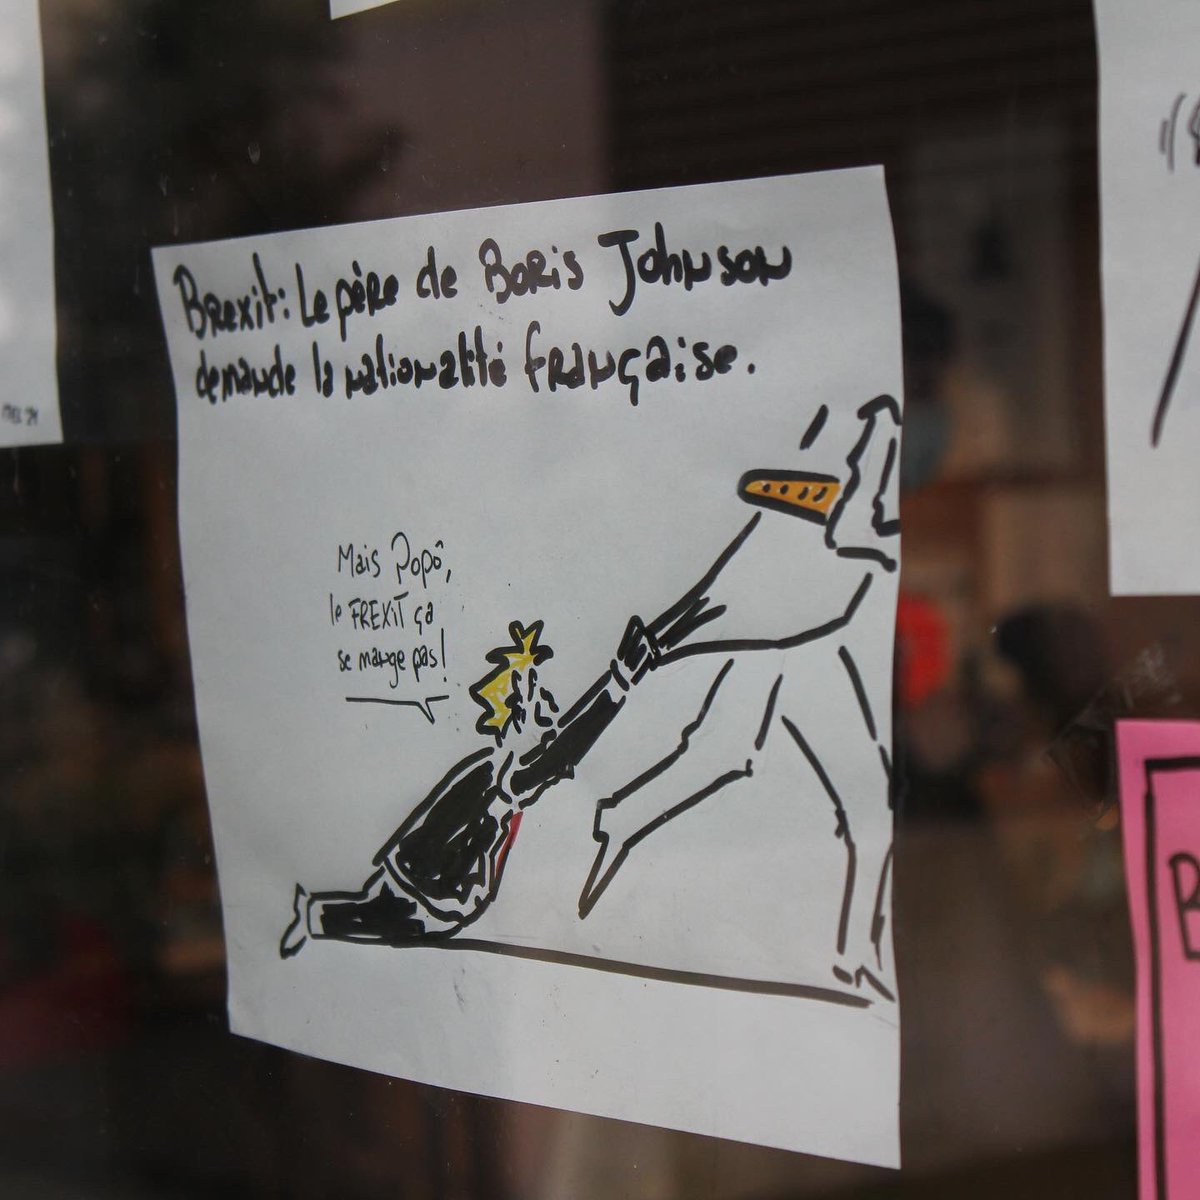 Brexit: Le père de Boris Johnson
demande la nationalité française.
Mais Popô,
le FREXIT ça
se mange pas!
B